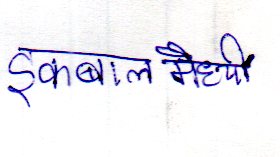 इकबाल मैहदी